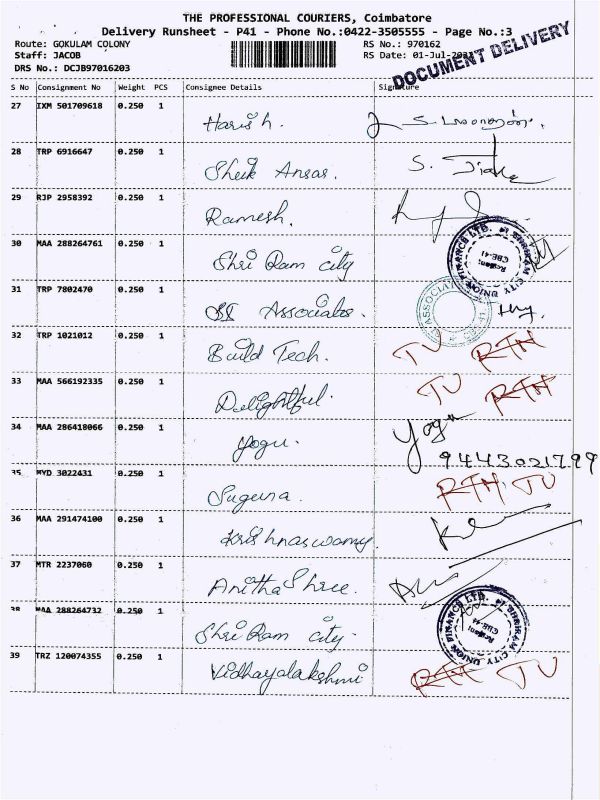 THE PROFESSIONAL COURIERS, Coimbatore
Delivery Runsheet - P41 - Phone No.:0422-3505555 - Page No.:3
Route: GOKULAM COLONY RS No.: 970162
Staff: JACOB RS Date: 01-Jul-2021
DRS No.: DCJB97016203
DOCUMENT DELIVERY
S No Consignment No Weight PCS Consignee Details Signature
27 IXM 501709618 0.250 1
Harish.
28 TRP 6916647 0.250 1
Sheik Ansar. S.
29 RJP 2958392 0.250 1
Ramesh.
30 MAA 288264761 0.250 1
Shri Ram city
SHRIRAM CITY UNION FINANCE LTD. CBE-41
31 TRP 7802470 0.250 1
SS Associates.
ASSOCIA
32 TRP 1021012 0.250 1
Build Tech. TU RTH
33 MAA 566192335 0.250 1
Delightful. TU RTH
34 MAA 286418066 0.250 1
Yogu. Yogu
9443021799
35 MYD 3022431 0.250 1
Suguna. RTH TU
36 MAA 291474100 0.250 1
Krishnaswamy.
37 MTR 2237060 0.250 1
Anitha Shree.
38 MAA 288264732 0.250 1
Shri Ram city.
SHRIRAM CITY UNION FINANCE LTD. CBE-41
39 TRZ 120074355 0.250 1
Vidhayalakshmi RTH TU